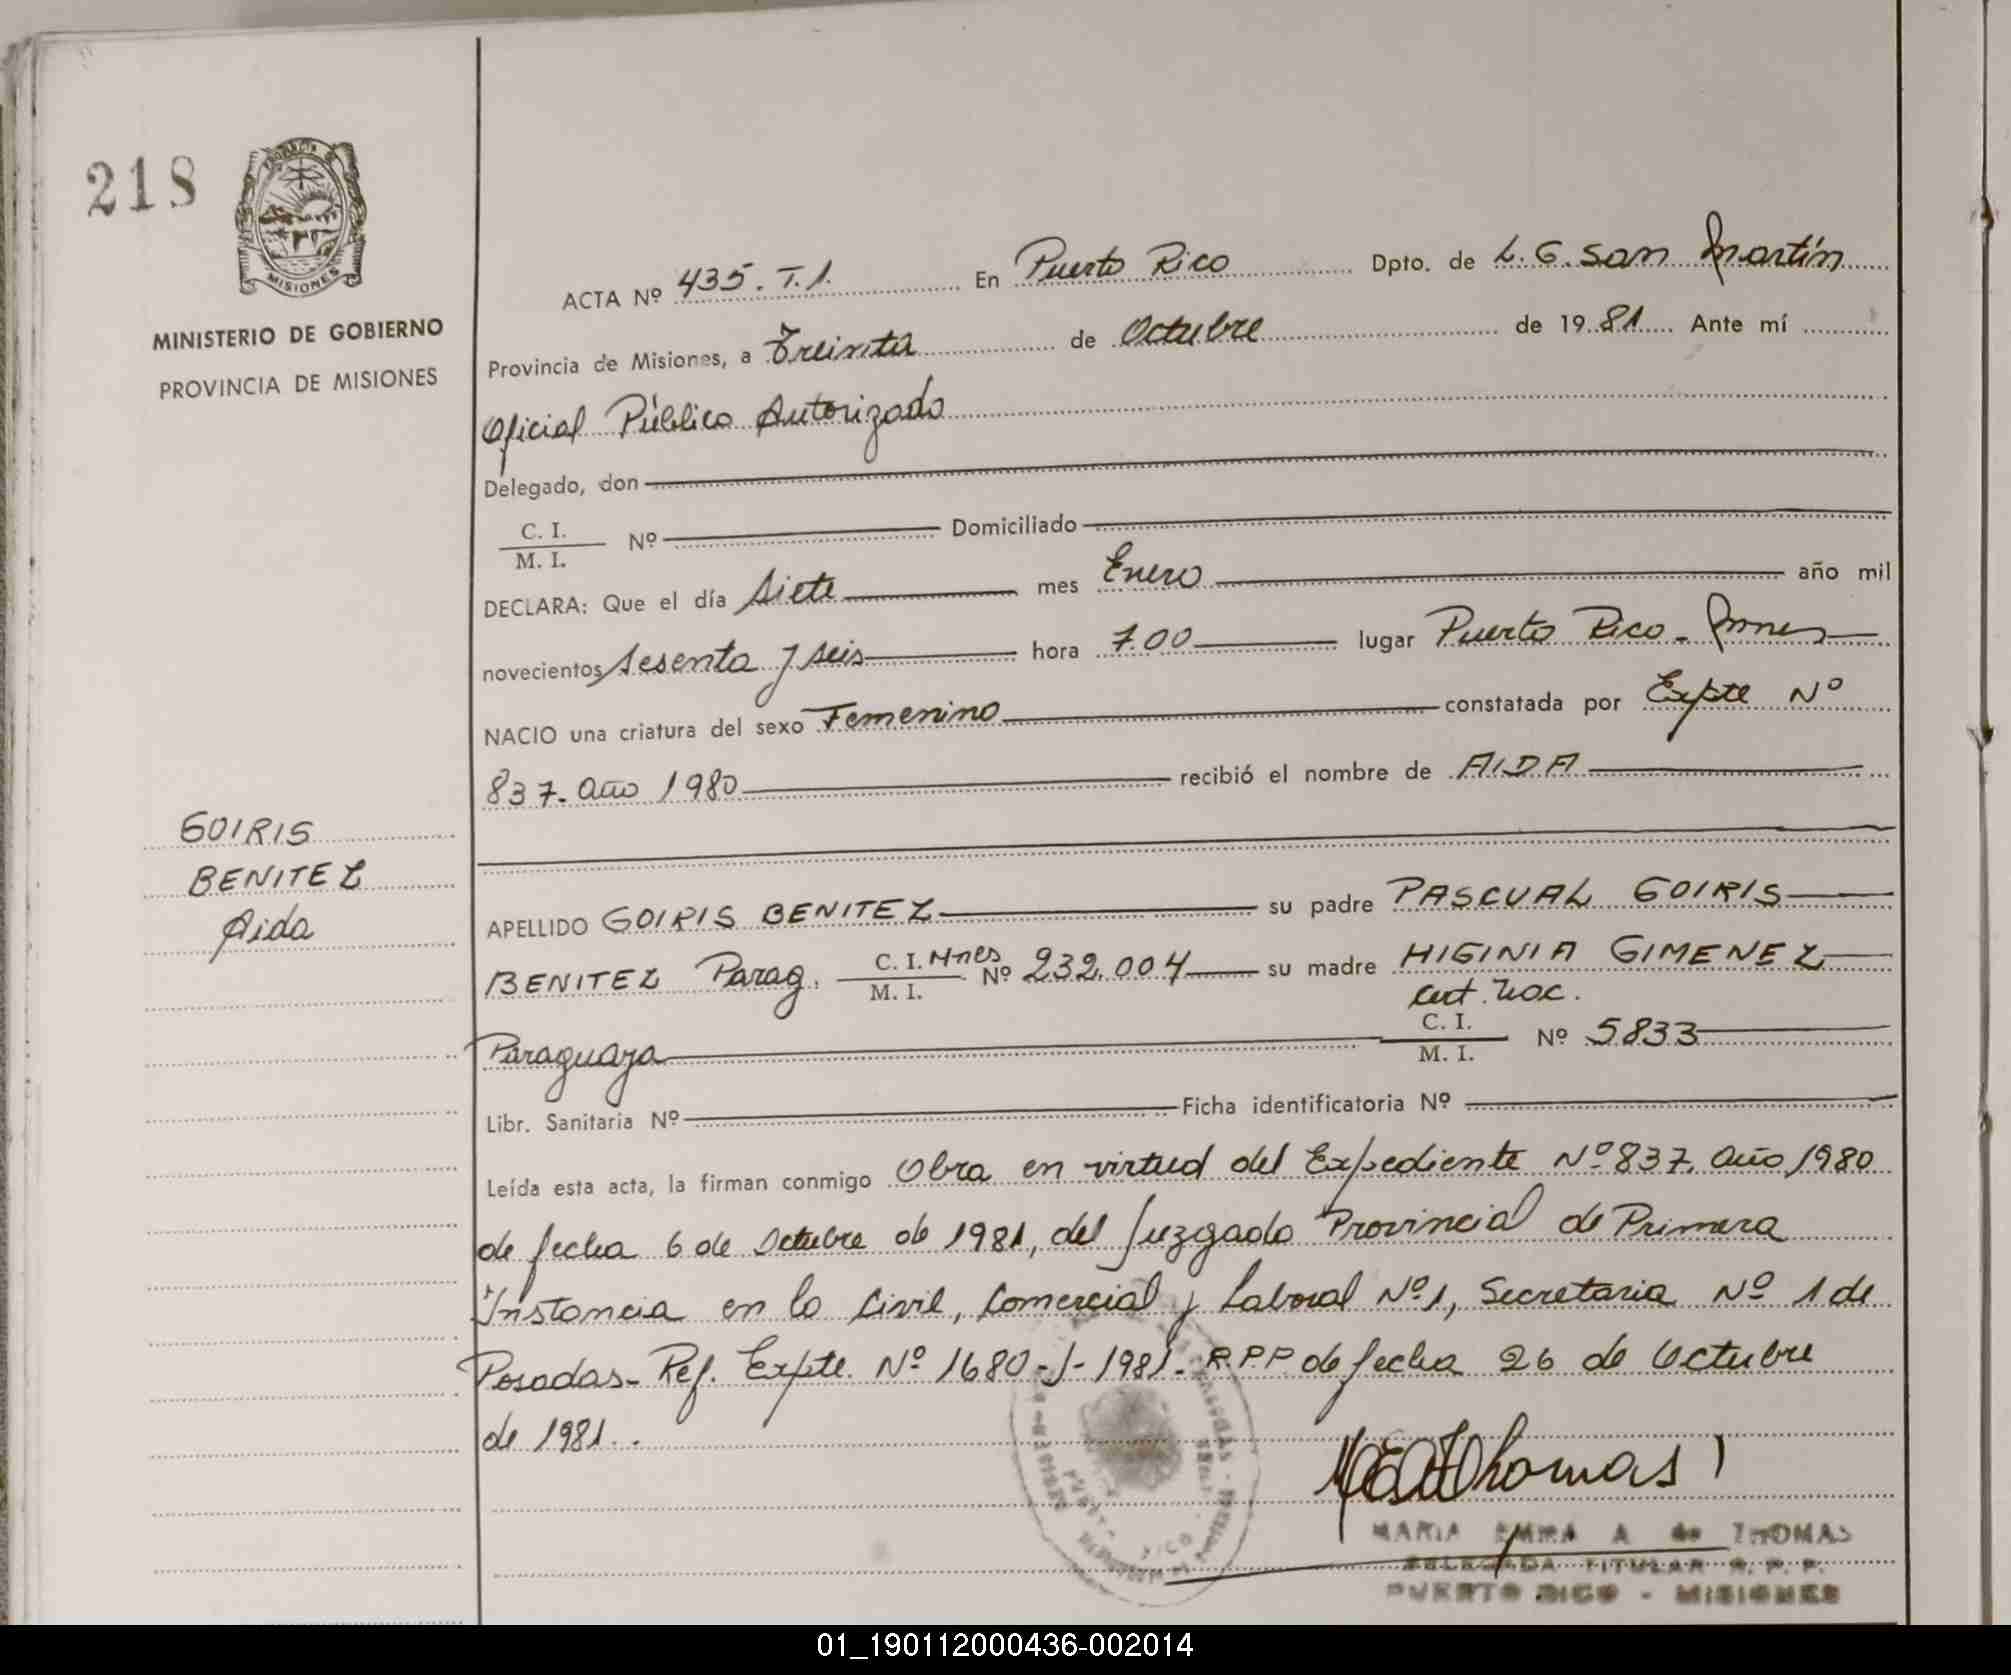 218
PROVINCIA DE
MISIONES
MINISTERIO DE GOBIERNO
PROVINCIA DE MISIONES
GOIRIS
BENITEZ
Aida
ACTA Nº 435. T.1. En Puerto Rico Dpto. de L. G. San Martín
Provincia de Misiones, a Treinta de Octubre de 1981 Ante mí
Oficial Público Autorizado
Delegado, don
C. I.
M. I. Nº Domiciliado
DECLARA: Que el día Siete mes Enero año mil
novecientos Sesenta y seis hora 7.00 lugar Puerto Rico - Mnes
NACIO una criatura del sexo Femenino constatada por Expte Nº
837- año 1980 recibió el nombre de AIDA
APELLIDO GOIRIS BENITEZ su padre PASCUAL GOIRIS
BENITEZ Parag. C. I. Mnes M. I. Nº 232.004 su madre HIGINIA GIMENEZ
Paraguaya C. I. M. I. Nº 5833
Libr. Sanitaria Nº Ficha identificatoria Nº
Leída esta acta, la firman conmigo Obra en virtud del Expediente Nº 837, año 1980
de fecha 6 de Octubre de 1981, del Juzgado Provincial de Primera
Instancia en lo Civil, Comercial y Laboral Nº 1, Secretaria Nº 1 de
Posadas- Ref. Expte. Nº 1680-J-1981- R.P.P de fecha 26 de Octubre
de 1981..
Thomas
MARIA EMMA A de THOMAS
DELEGADA TITULAR R. P. P.
PUERTO RICO - MISIONES
01_190112000436-002014